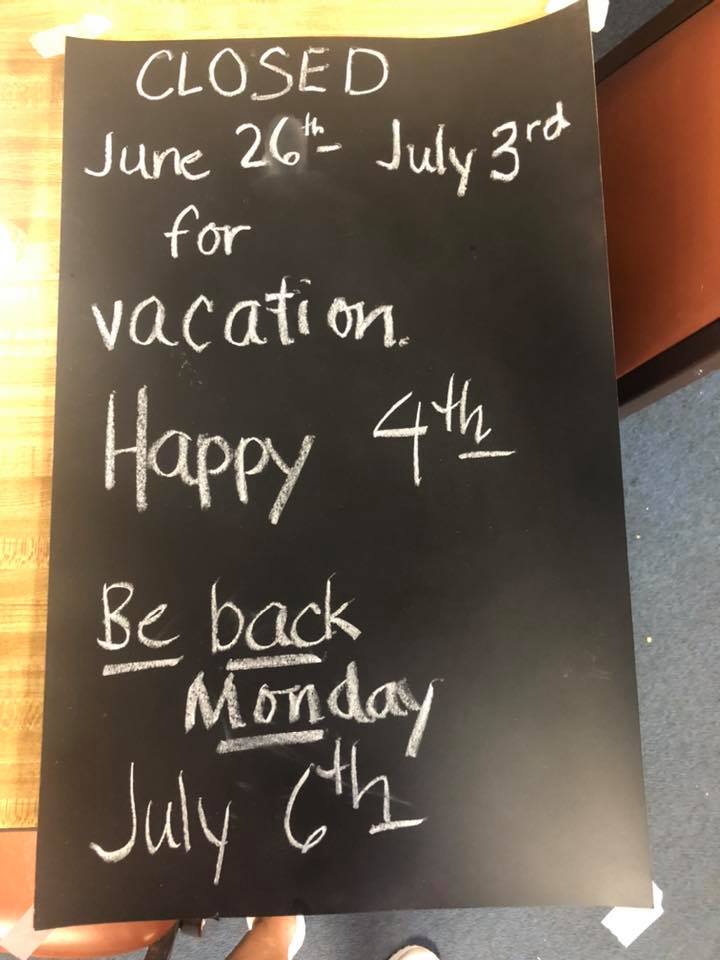 CLOSED
June 26th - July 3rd
for
vacation.
Happy 4th
Be back
Monday
July 6th